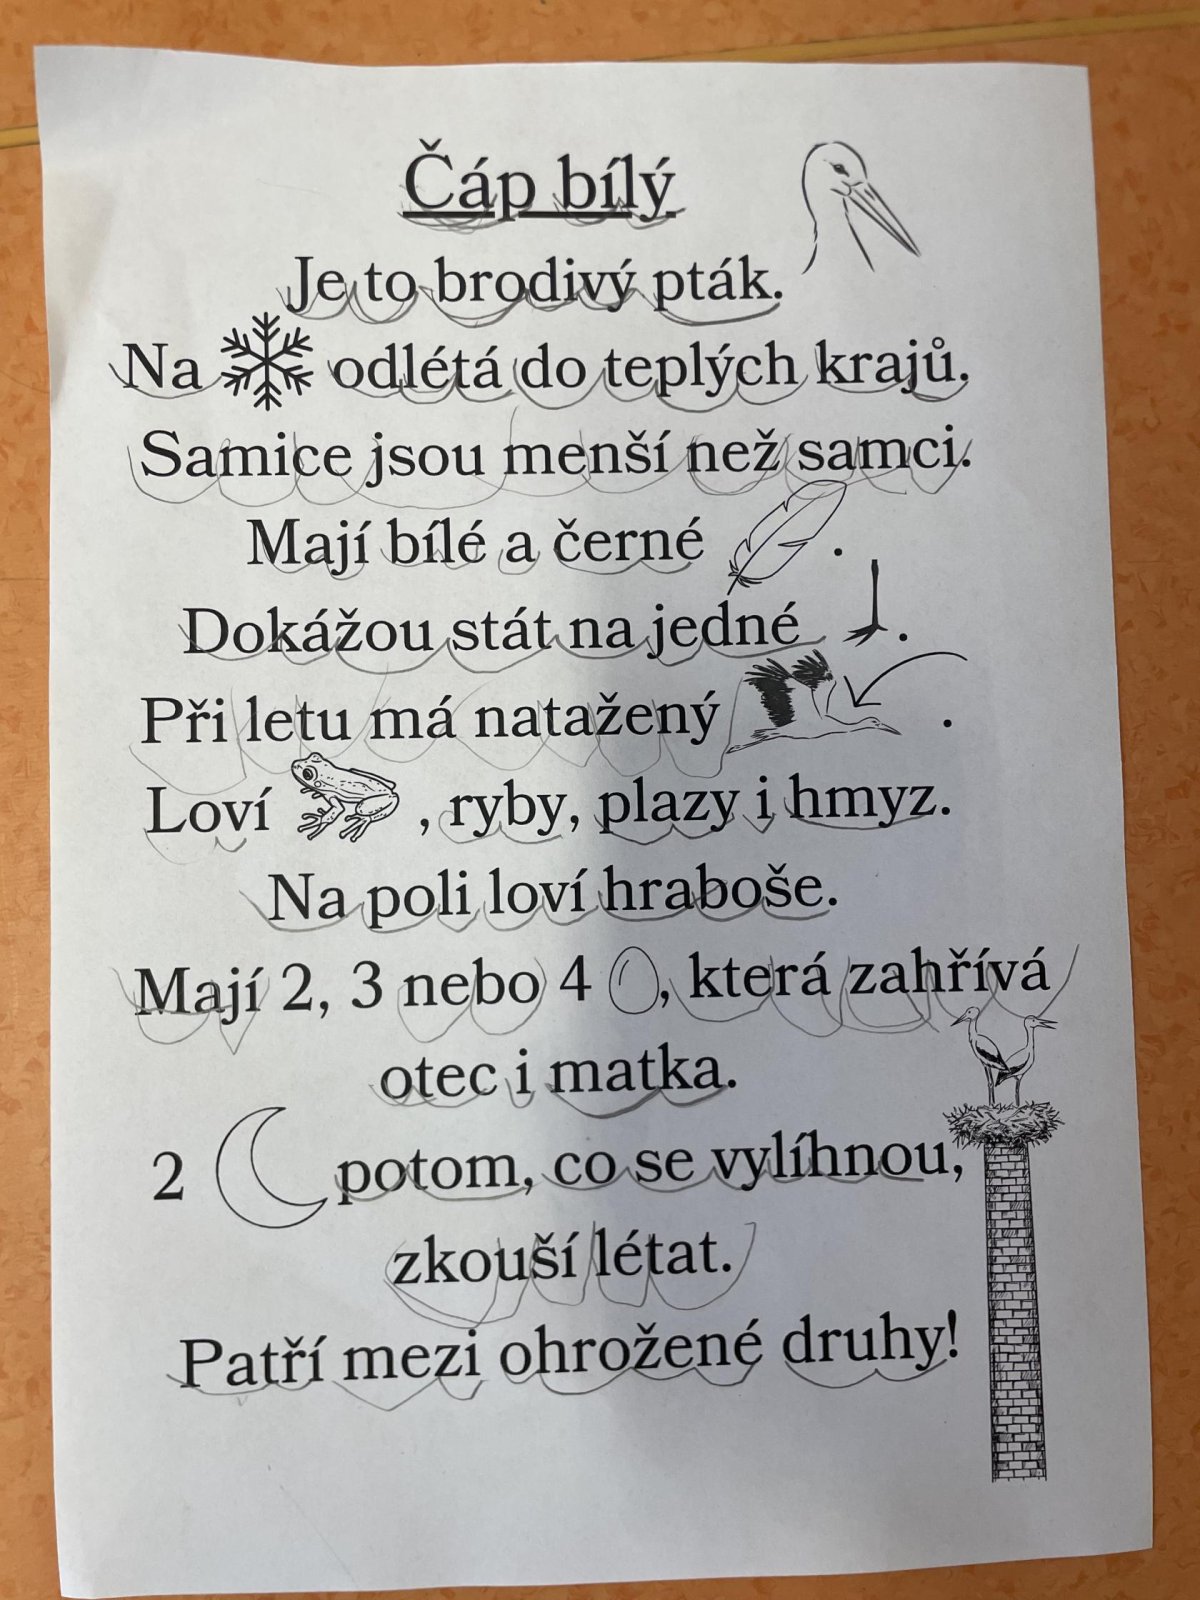 Čáp bílý
Je to brodivý pták.
Na odlétá do teplých krajů.
Samice jsou menší než samci.
Mají bílé a černé .
Dokážou stát na jedné .
Při letu má natažený .
Loví , ryby, plazy i hmyz.
Na poli loví hraboše.
Mají 2, 3 nebo 4 , která zahřívá
otec i matka.
2 potom, co se vylíhnou,
zkouší létat.
Patří mezi ohrožené druhy!